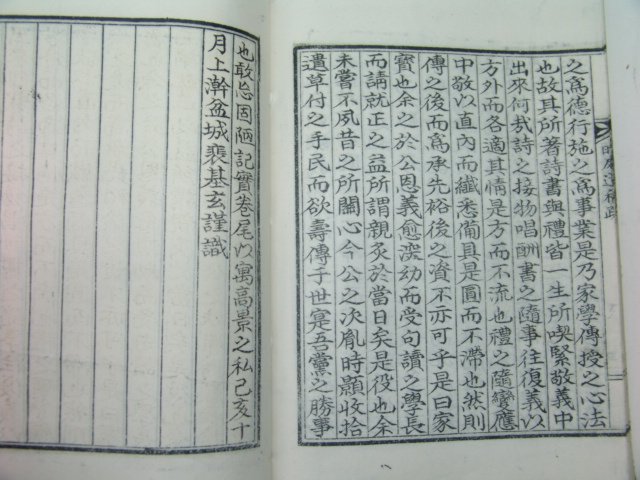 之爲德行施之爲事業是乃家學傳授之心法
也故其所著詩書與禮皆一生所喫緊敬義中
出來何哉詩之接物唱酬書之隨事往復義以
方外而各適其情是方而不流也禮之隨變應
中敬以直內而纖悉備具是圓而不滯也然則
傳之後而爲承先裕後之資不亦可乎是曰家
寶也余之於公恩義愈深幼而受句讀之學長
而請就正之益所謂親炙於當日矣是役也余
未嘗不夙昔之所關心今公之次胤時顯收拾
遺草付之手民而欲壽傳于世寔吾黨之勝事
也敢忘固陋記實卷尾以寓高景之私己亥十
月上澣盆城裴基玄謹識